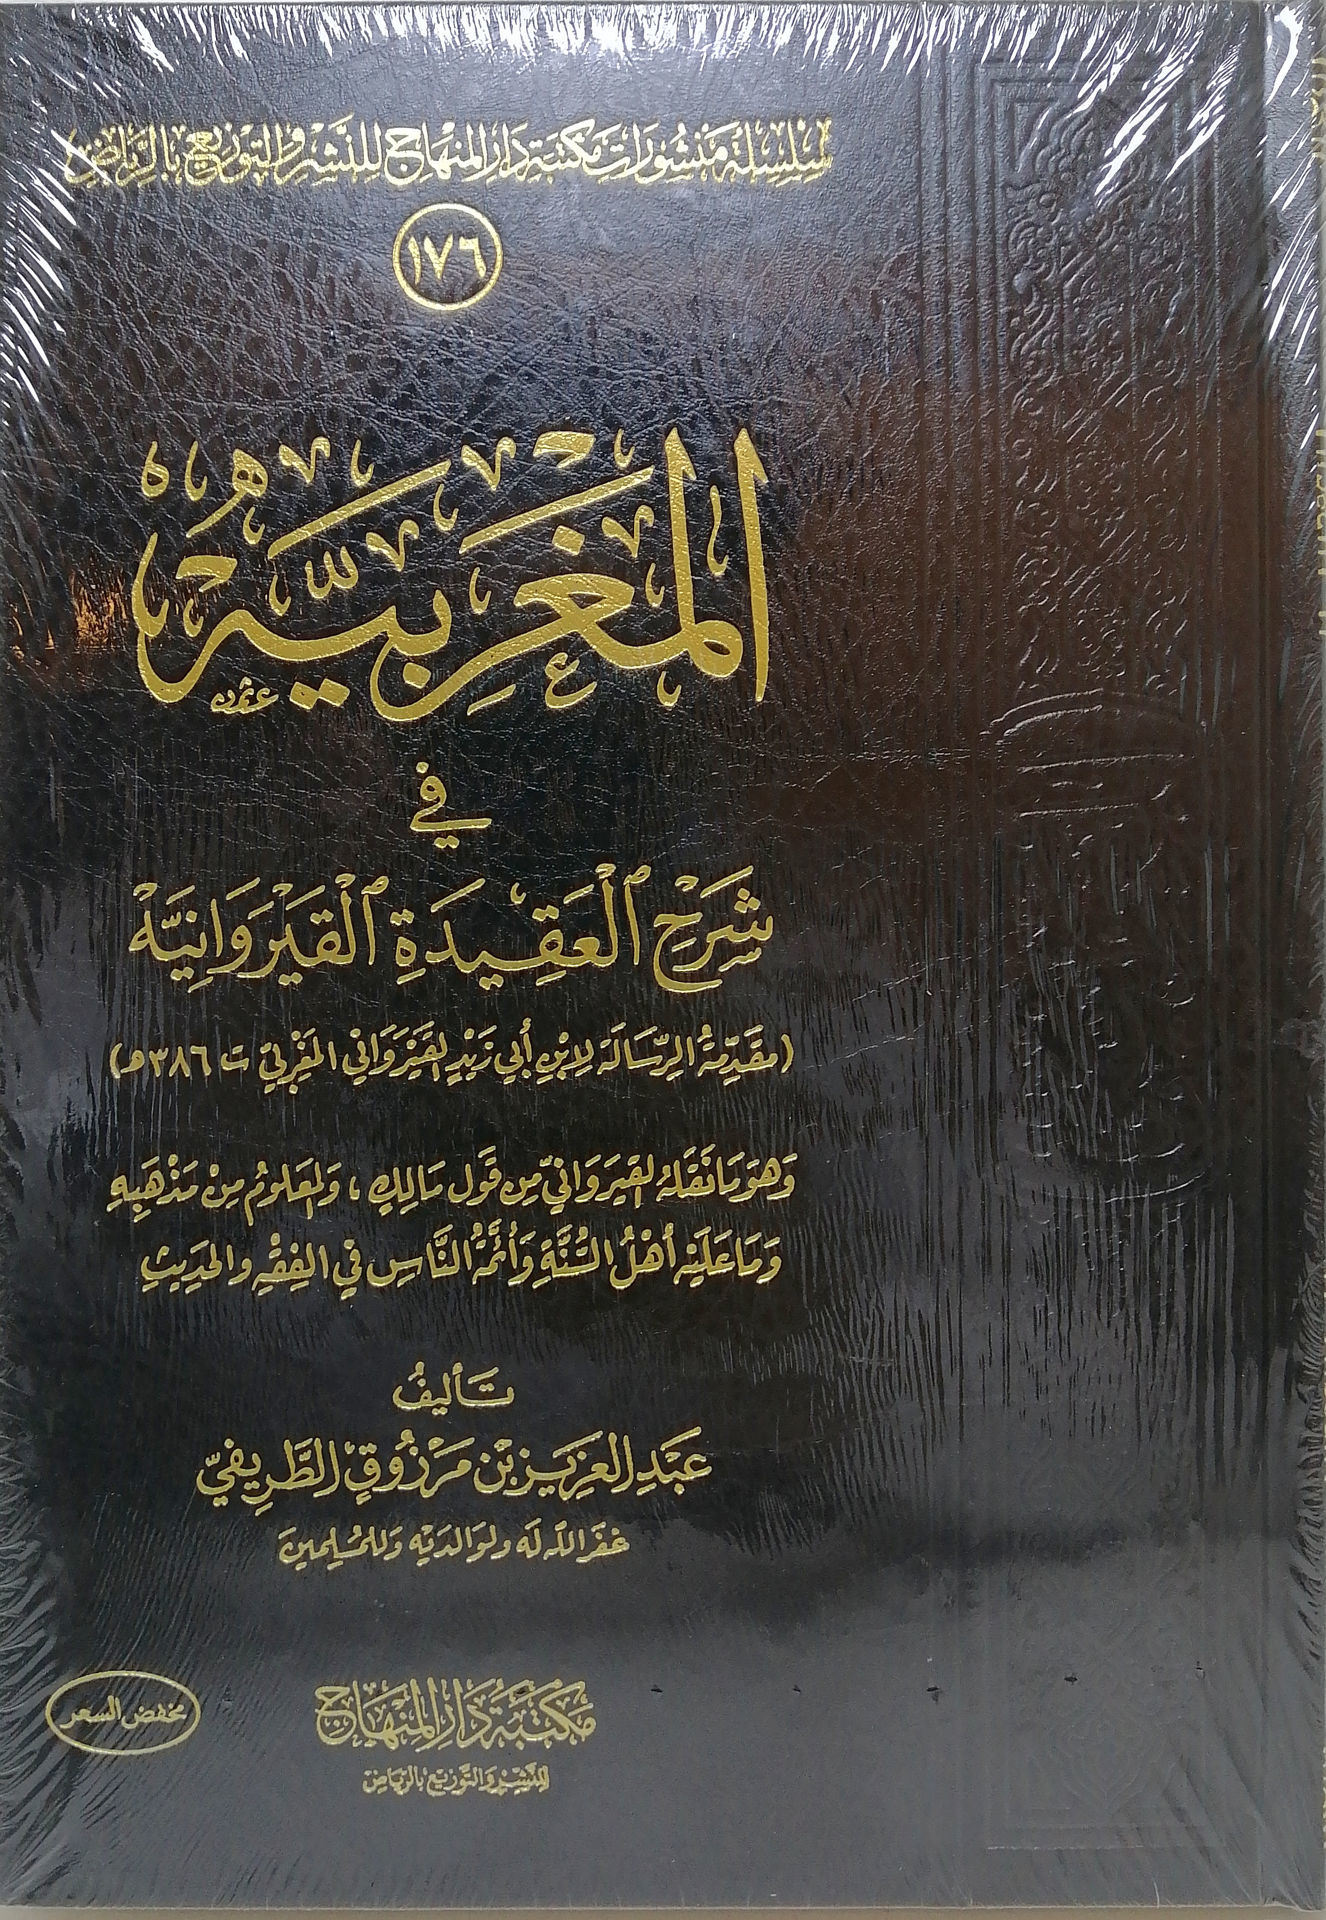 سِلْسِلَةُ مَنْشُورَاتِ مَكْتَبَةِ دَارِ المِنْهَاجِ لِلنَّشْرِ وَالتَّوْزِيعِ بِالرِّيَاضِ
١٧٦
المَغْرِبِيَّة
فِي
شَرْحِ ٱلْعَقِيدَةِ ٱلْقَيْرَوَانِيَّةْ
(مقَدِّمَةُ الرِّسَالَةِ لِابْنِ أَبِي زَيْدٍ القَيْرَوَانِي المَغْرِبيِّ ت ٣٨٦هـ)
وَهُوَ مَا نَقَلَهُ القَيْرَوَانِيّ مِن قَولِ مَالِكٍ ، وَالمَعْلُومُ مِنْ مَذْهَبِهِ
وَمَا عَلَيْهِ أَهْلُ السُّنَّةِ وَأَئِمَّةُ النَّاسِ فِي الفِقْهِ وَالحَدِيثِ
تَأليفُ
عَبْدِ العَزِيز بْن مَرْزُوقٍ الطَّرِيفيّ
غفَرَ اللَّه لَه ولوَالدَيْه وَللمُسْلِمينَ
مَكْتَبَةُ دَارِ المِنْهَاجِ
للنَّشْرِ وَالتَّوْزِيع بالرِّيَاض
مخفض السعر